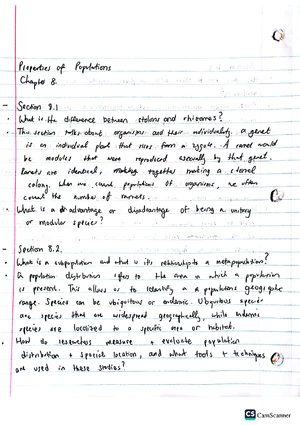 Properties of Populations
Chapter 8.
- Section 8.1
• What is the difference between stolons and rhizomes?
• This section talks about organisms and their individuality. A genet
is an individual plant that rises form a zygote. A ramet would
be modules that were reproduced asexually by that genet.
Ramets are identical, making together making a clonal
colony. When we count populations of organisms, we often
count the number of ramets.
• What is a advantage or disadvantage of being a unitary
or modular species?
- Section 8.2.
• What is a subpopulation and what is its relationship to a metapopulation?
• A population distribution refers to the area in which a population
is present. This allows us to identify a a populations geographic
range. Species can be ubiquitous or endemic. Ubiquitous species
are species that are widespread geographically, while endemic
species are localized to a specific area or habitat.
• How do researchers measure + evaluate population
distribution + special location, and what tools + techniques
are used in these studies?
CS CamScanner